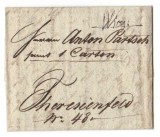 Wien
Herrn Anton Partsch
samt 1 Carton
Theresienfeld
Nr. 48.